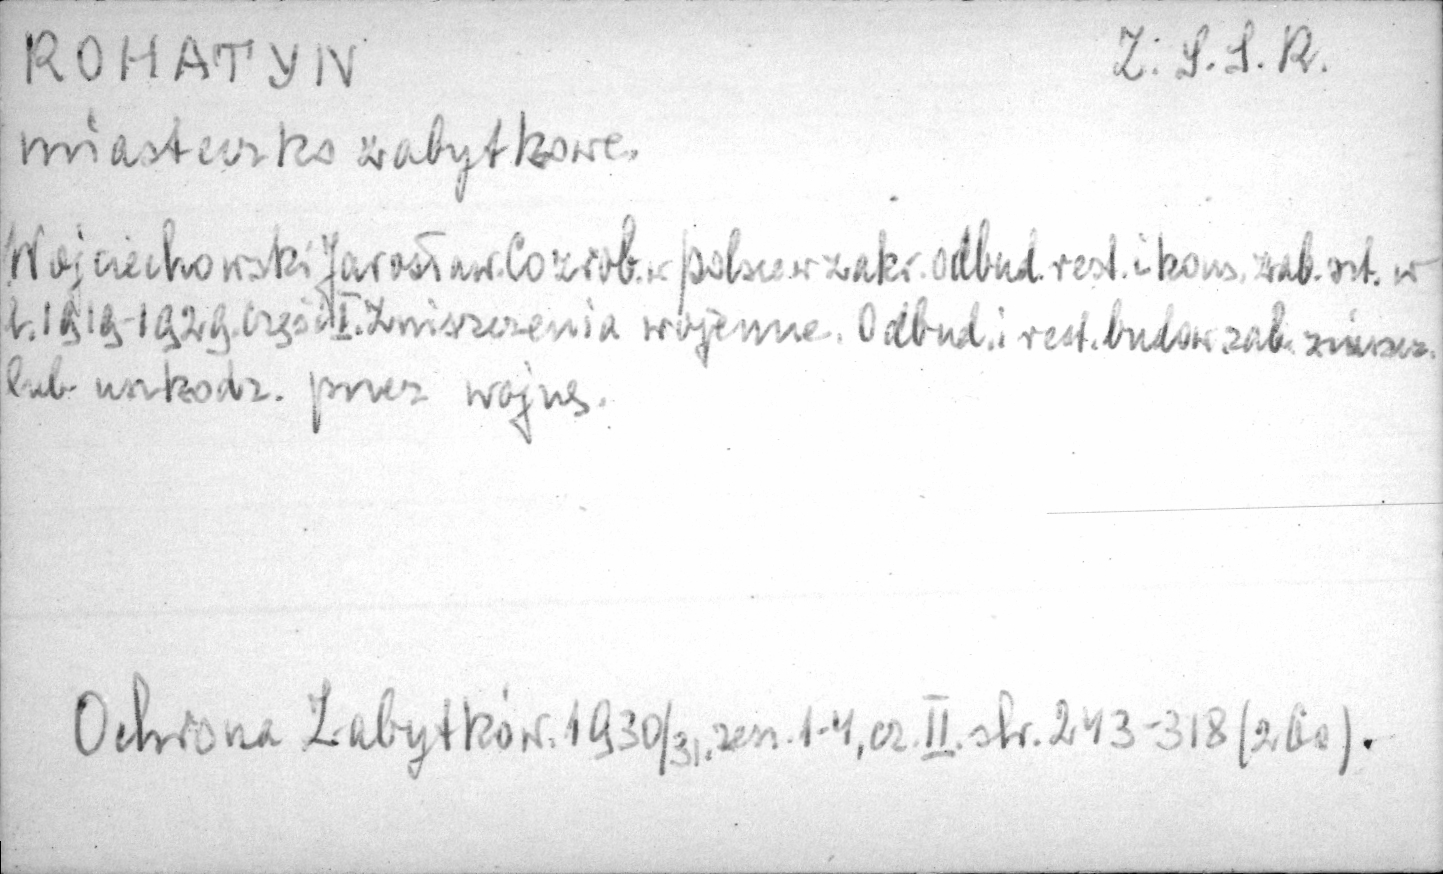 ROHATYN
Z.S.S.R.
miasteczko zabytkowe.
Wojciechowski Jarosław. Co zrob. w polsce w zakr. odbud. rest. i kons. zab. szt. w
l. 1919-1929. Część I. Zniszczenia wojenne. Odbud. i rest. budow. zab. zniszcz.
lub uszkodz. przez wojnę.
Ochrona Zabytków. 1930/31, zesz. 1-4, cz. II. str. 243-318 (260).